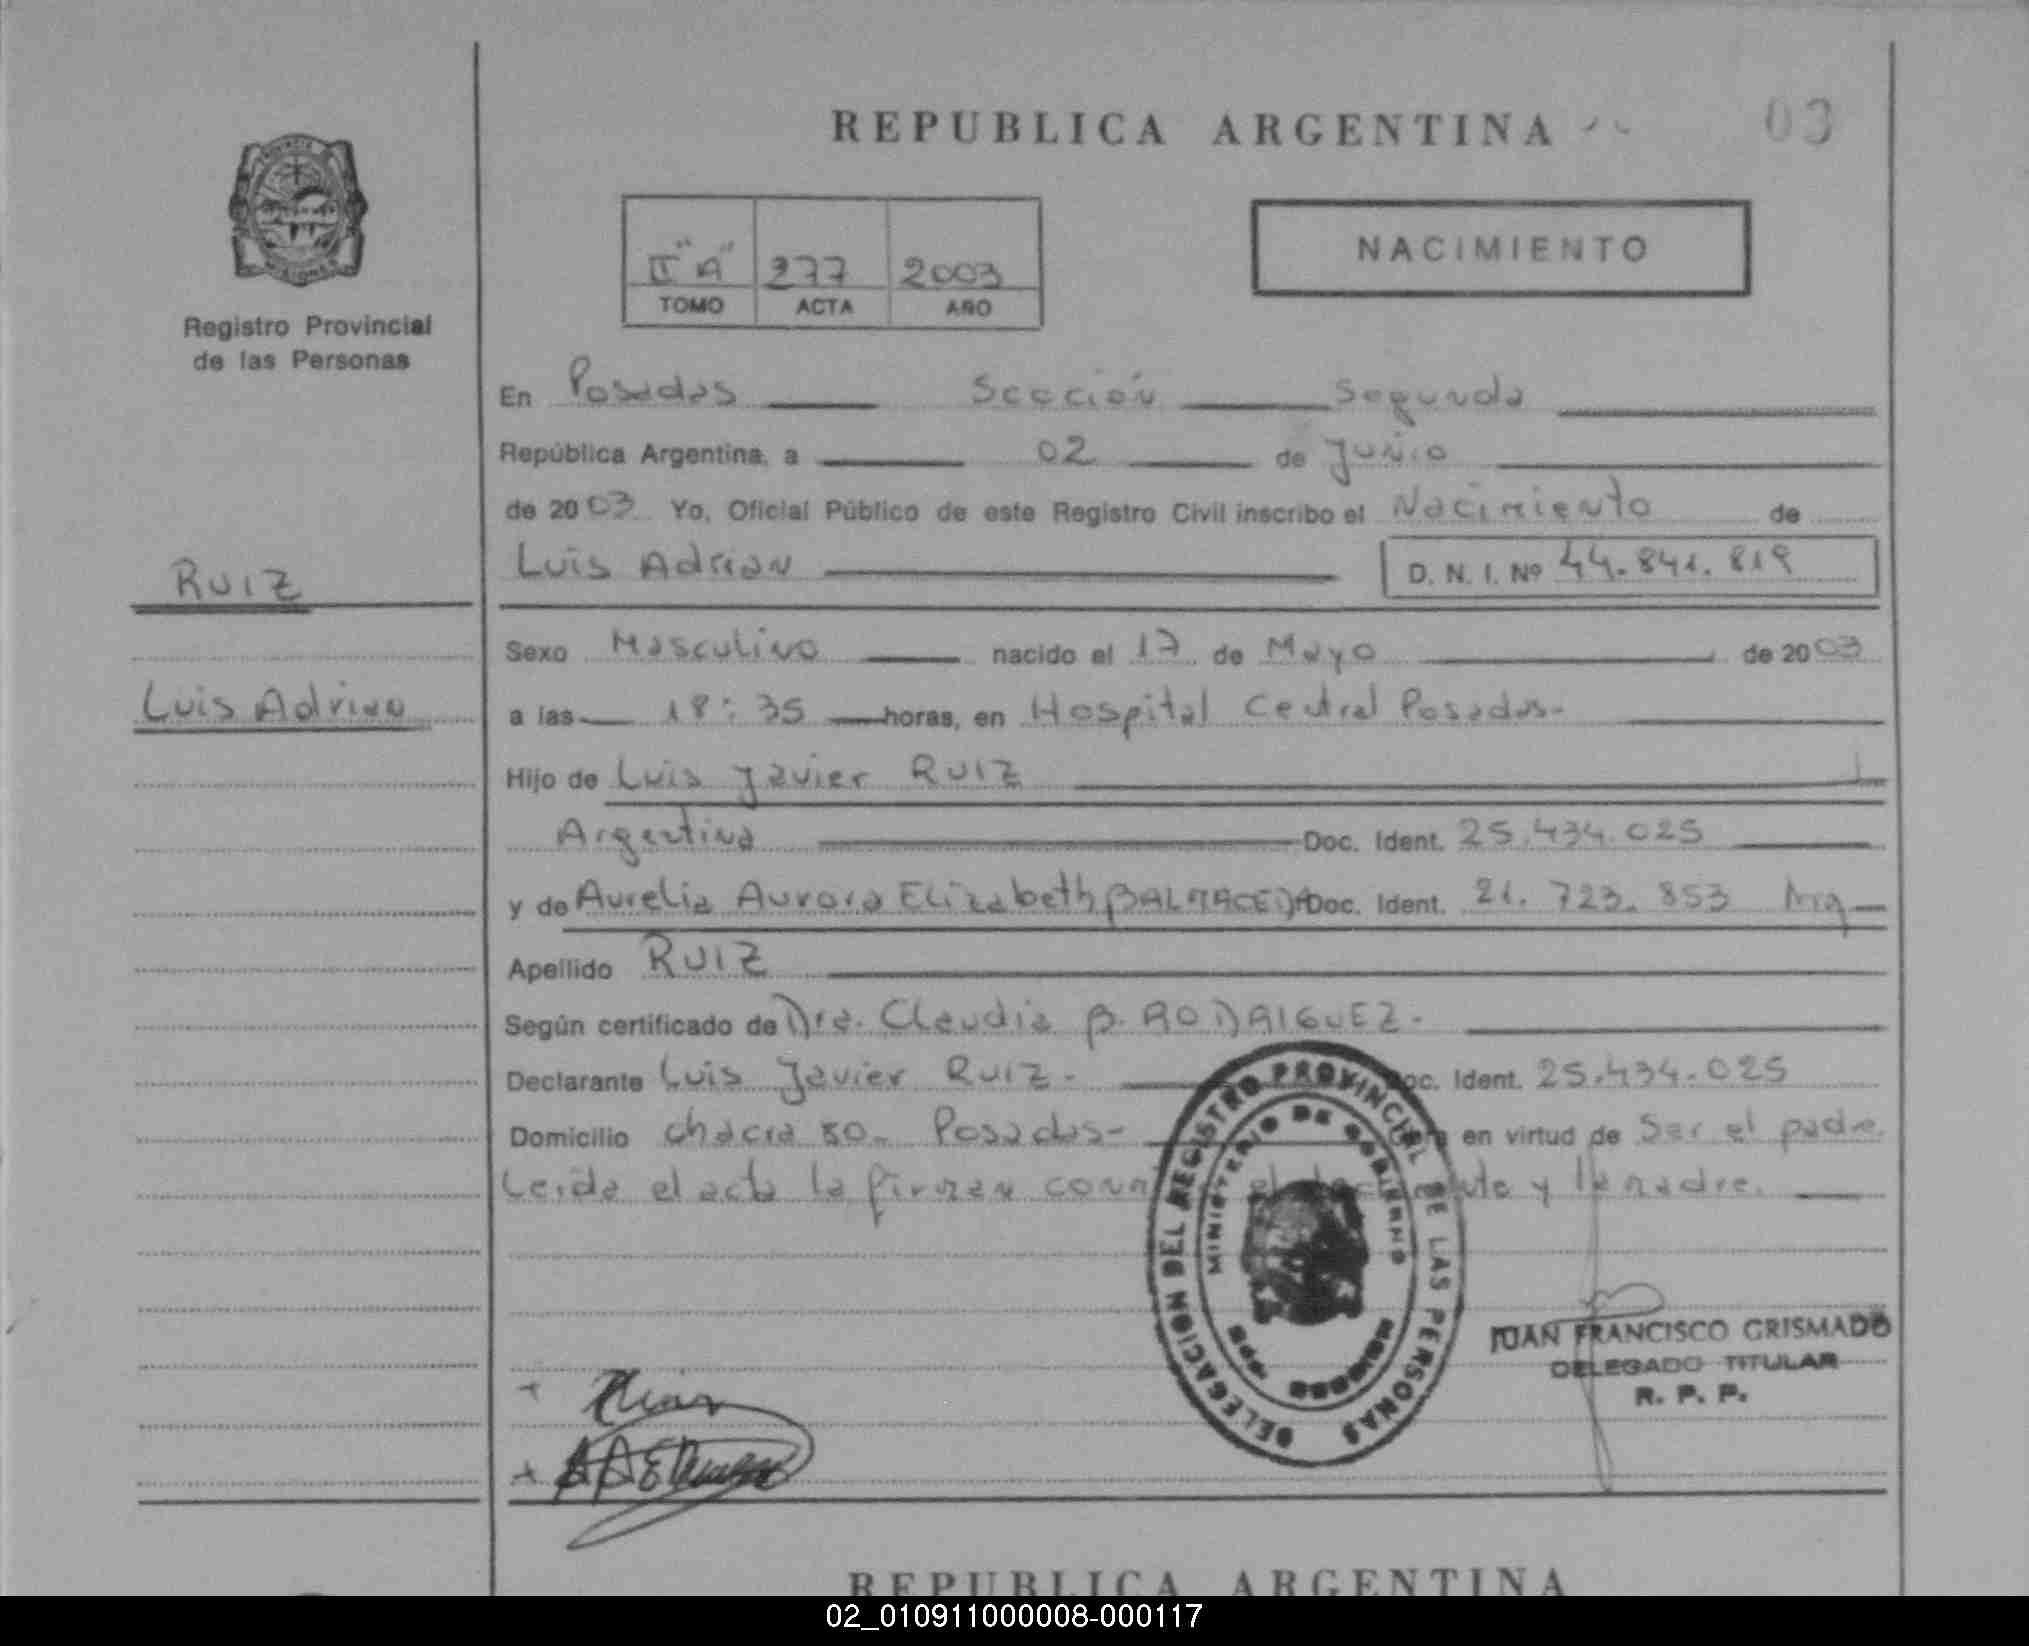 REPUBLICA ARGENTINA
03
Registro Provincial
de las Personas
II "A" 277 2003
TOMO ACTA AÑO
NACIMIENTO
En Posadas Sección Segunda
República Argentina, a 02 de Junio
de 2003 Yo, Oficial Público de este Registro Civil inscribo el Nacimiento de
RUIZ
Luis Adrian D. N. I. Nº 44.841.819
Sexo Masculino nacido el 17 de Mayo de 2003
Luis Adrian
a las 18:35 horas, en Hospital Central Posadas-
Hijo de Luis Javier RUIZ
Argentina Doc. Ident. 25.434.025
y de Aurelia Aurora Elizabeth BALMACEDA Doc. Ident. 21.723.853 Arg
Apellido RUIZ
Según certificado de Dra. Claudia B. RODRIGUEZ.
Declarante Luis Javier Ruiz. Doc. Ident. 25.434.025
Domicilio Chacra 80- Posadas- en virtud de Ser el padre.
Leida el acta la firman y la madre.
DELEGACION DEL REGISTRO PROVINCIAL DE LAS PERSONAS
MINISTERIO DE GOBIERNO
JUAN FRANCISCO GRISMADO
DELEGADO TITULAR
R. P. P.
REPUBLICA ARGENTINA
02_010911000008-000117